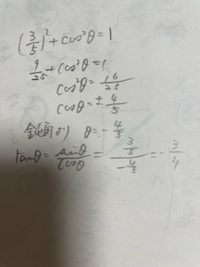 (3/5)² + cos²θ = 1
9/25 + cos²θ = 1
cos²θ = 16/25
cosθ = ± 4/5
θ = - 4/5
tanθ = sinθ/cosθ = (3/5)/(-4/5) = - 3/4